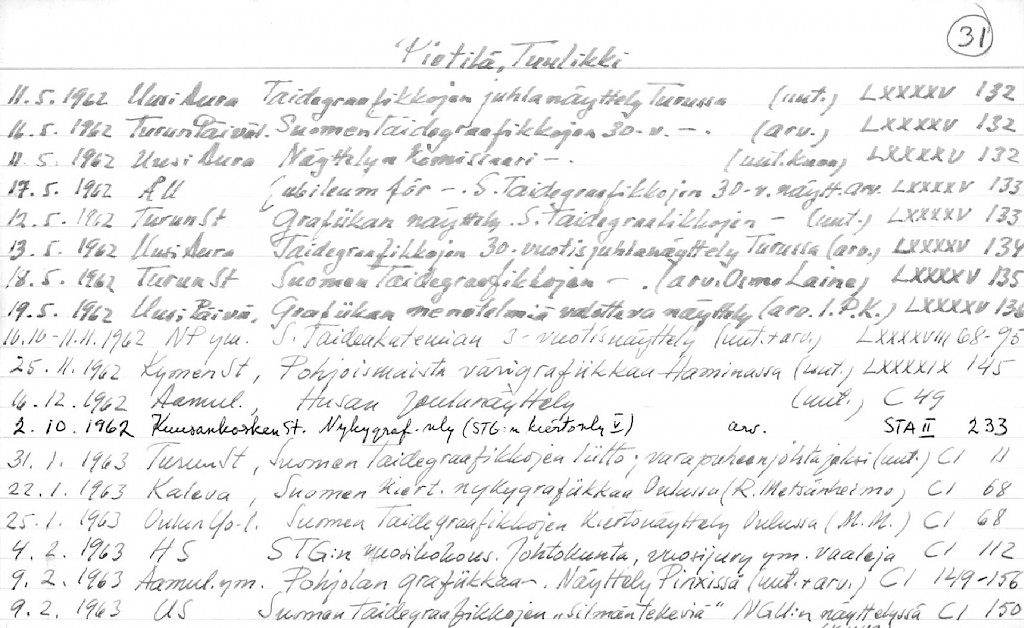 31
Pietilä, Tuulikki
11.5. 1962 Uusi Aura Taidegraafikkojen juhlanäyttely Turussa (uut.) LXXXXV 132
16.5. 1962 Turun Päiväl. Suomen Taidegraafikkojen 30-v. –. (arv.) LXXXXV 132
11.5. 1962 Uusi Aura Näyttelyn Komissaari –. (uut.kuva) LXXXXV 132
17.5. 1962 ÅU Jubileum för –. S. Taidegraafikkojen 30-v. näytt. arv. LXXXXV 133
12.5. 1962 Turun St Grafiikan näyttely. S. Taidegraafikkojen – (uut.) LXXXXV 133
13.5. 1962 Uusi Aura Taidegraafikkojen 30-vuotisjuhlanäyttely Turussa (arv.) LXXXXV 134
18.5. 1962 Turun St Suomen Taidegraafikkojen – . (arv. Osmo Laine) LXXXXV 135
19.5. 1962 Uusi Päivä, Grafiikan menetelmiä valottava näyttely (arv. I.P.K.) LXXXXV 136
16.10-11.11.1962 NP ym. S. Taideakatemian 3-vuotisnäyttely (uut.+arv.) LXXXXVIII 68-95
25.11.1962 Kymen St, Pohjoismaista värigrafiikkaa Haminassa (uut.) LXXXXIX 145
16.12.1962 Aamul., Husan Joulunäyttely (uut.) C 49
2.10.1962 Kuusankosken St. Nykygraf. nly (STG:n kiertonly V) arv. STA II 233
31.1. 1963 Turun St, Suomen Taidegraafikkojen liitto; varapuheenjohtajaksi (uut.) CI 11
22.1. 1963 Kaleva, Suomen kiert. nykygrafiikkaa Oulussa (R. Metsänheimo) CI 68
25.1. 1963 Oulun Yo-l. Suomen Taidegraafikkojen kiertonäyttely Oulussa (M.M.) CI 68
4.2. 1963 HS STG:n vuosikokous. Johtokunta, vuosijury ym. vaaleja CI 112
9.2. 1963 Aamul. ym. Pohjolan grafiikkaa –. Näyttely Pinxissä (uut.+arv.) CI 149-156
9.2. 1963 US Suomen Taidegraafikkojen „silmäntekeviä" NGU:n näyttelyssä CI 150